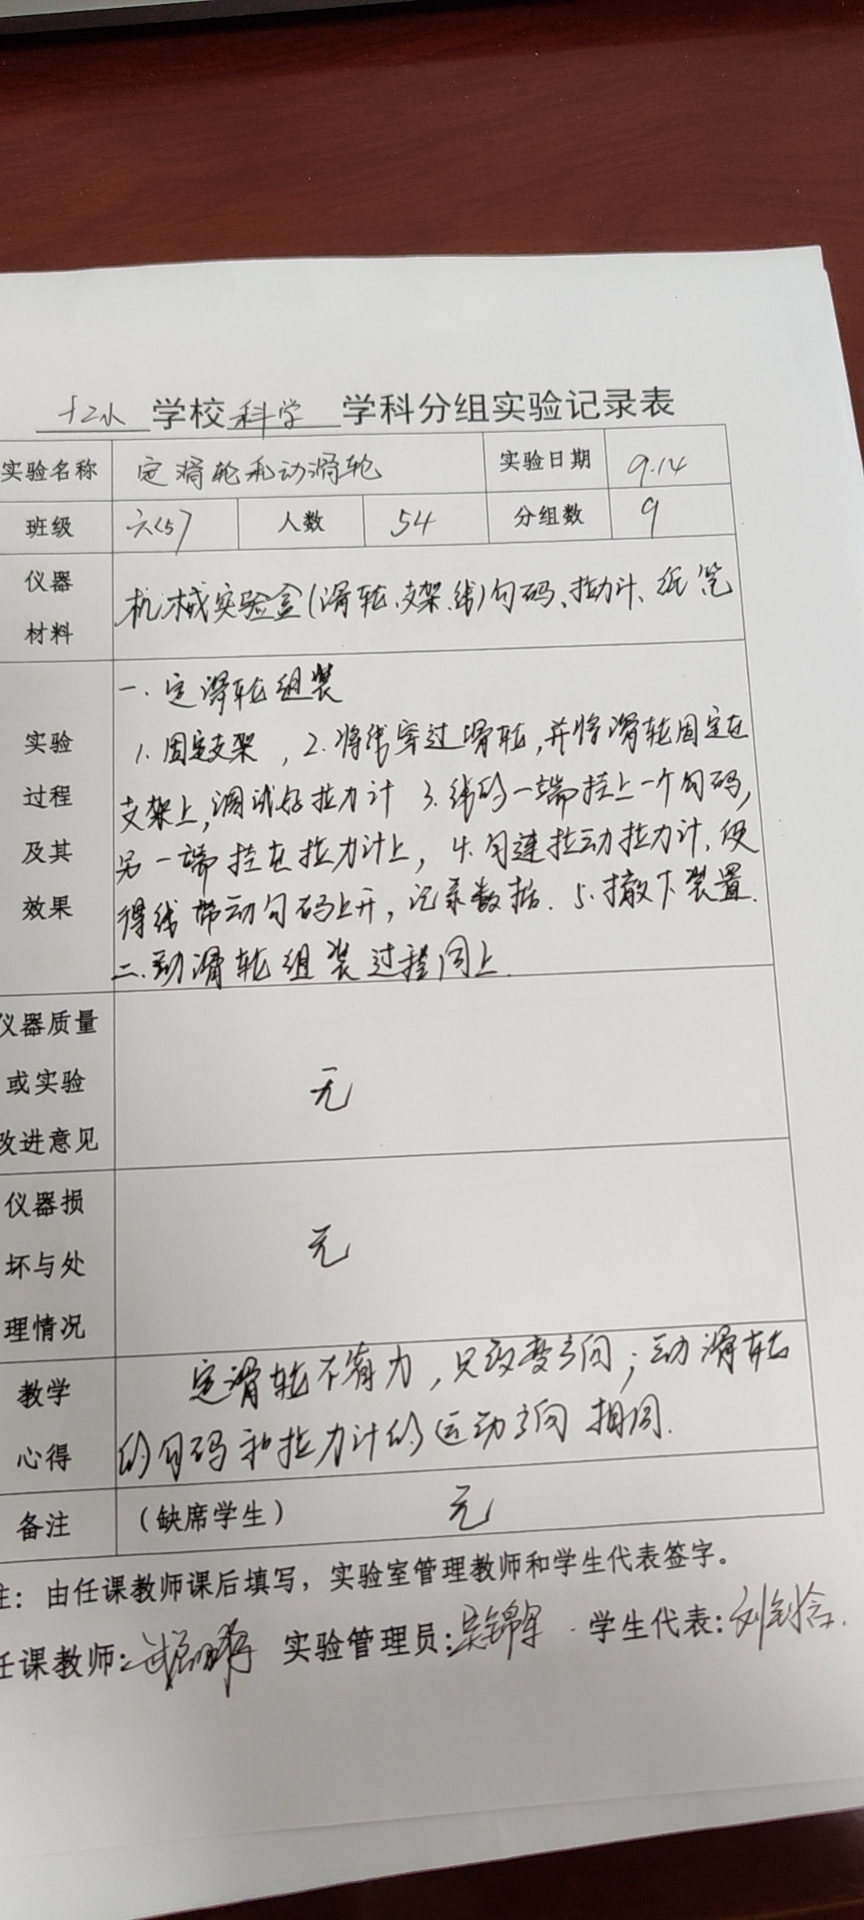 十二小 学校 科学 学科分组实验记录表
实验名称 定滑轮和动滑轮 实验日期 9.14
班级 六<5> 人数 54 分组数 9
仪器材料 机械实验盒(滑轮、支架、线)勾码、拉力计、纸笔
实验过程及其效果
一、定滑轮组装
1. 固定支架，2. 将线穿过滑轮，并将滑轮固定在
支架上，调试好拉力计 3. 线的一端挂上一个勾码，
另一端挂在拉力计上，4. 匀速拉动拉力计，使
得线带动勾码上升，记录数据. 5. 撤下装置.
二、动滑轮组装过程同上.
仪器质量
或实验
改进意见
无
仪器损
坏与处
理情况
无
教学心得
定滑轮不省力，只改变方向；动滑轮
的勾码和拉力计的运动方向相同.
备注 (缺席学生) 无
注：由任课教师课后填写，实验室管理教师和学生代表签字。
任课教师: 实验管理员: 学生代表: